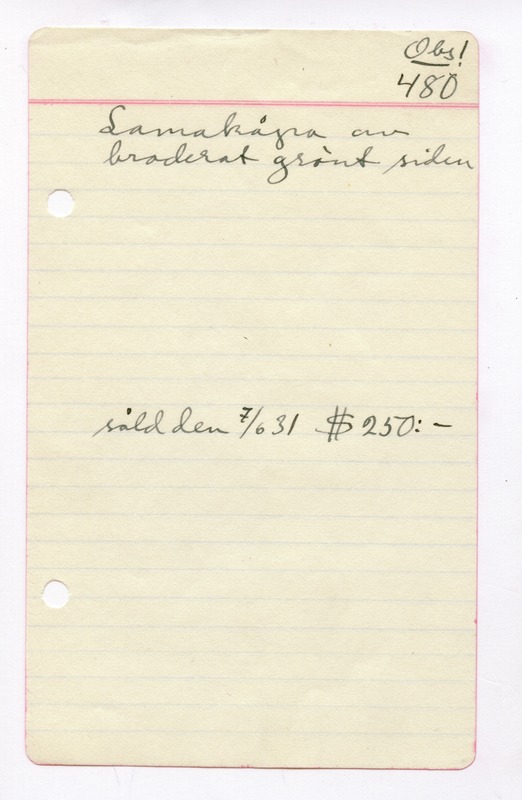 Obs!
480
Lamakåpa av
broderat grönt siden
såld den 7/6 31 $ 250:-